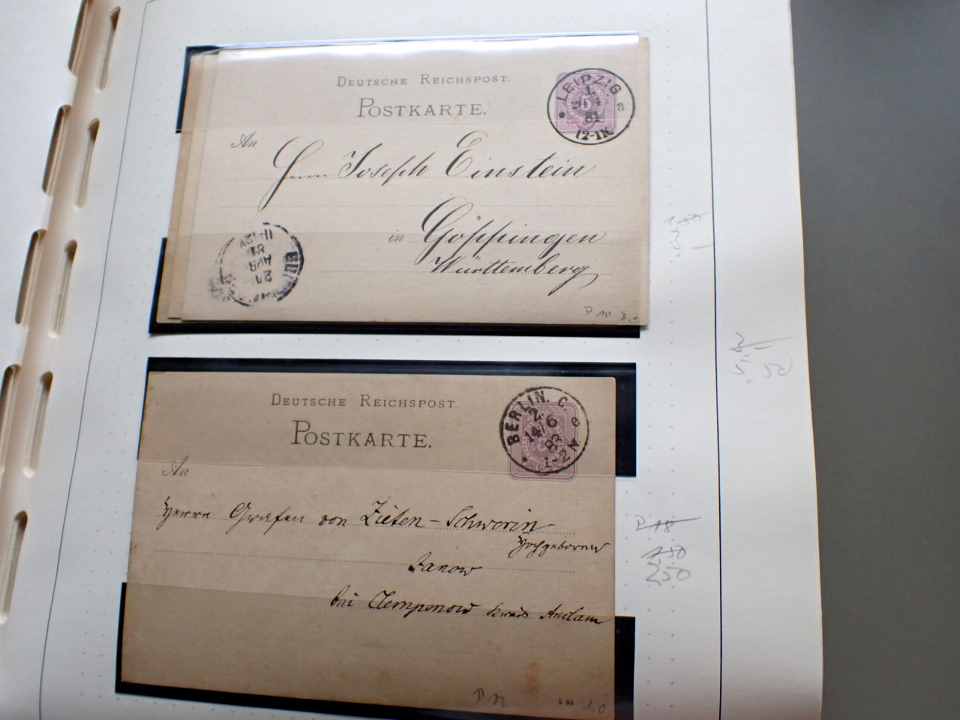 DEUTSCHE REICHSPOST.
POSTKARTE.
LEIPZIG
1.
81
12-1N
An
Herrn Joseph Einstein
in Göppingen
Württemberg
DEUTSCHE REICHSPOST.
POSTKARTE.
BERLIN. C.
2.
14/6
83
1-2N
An
Herrn Grafen von Zieten-Schwerin
Hochgeboren
Janow
bei Clempenow
5.50
250